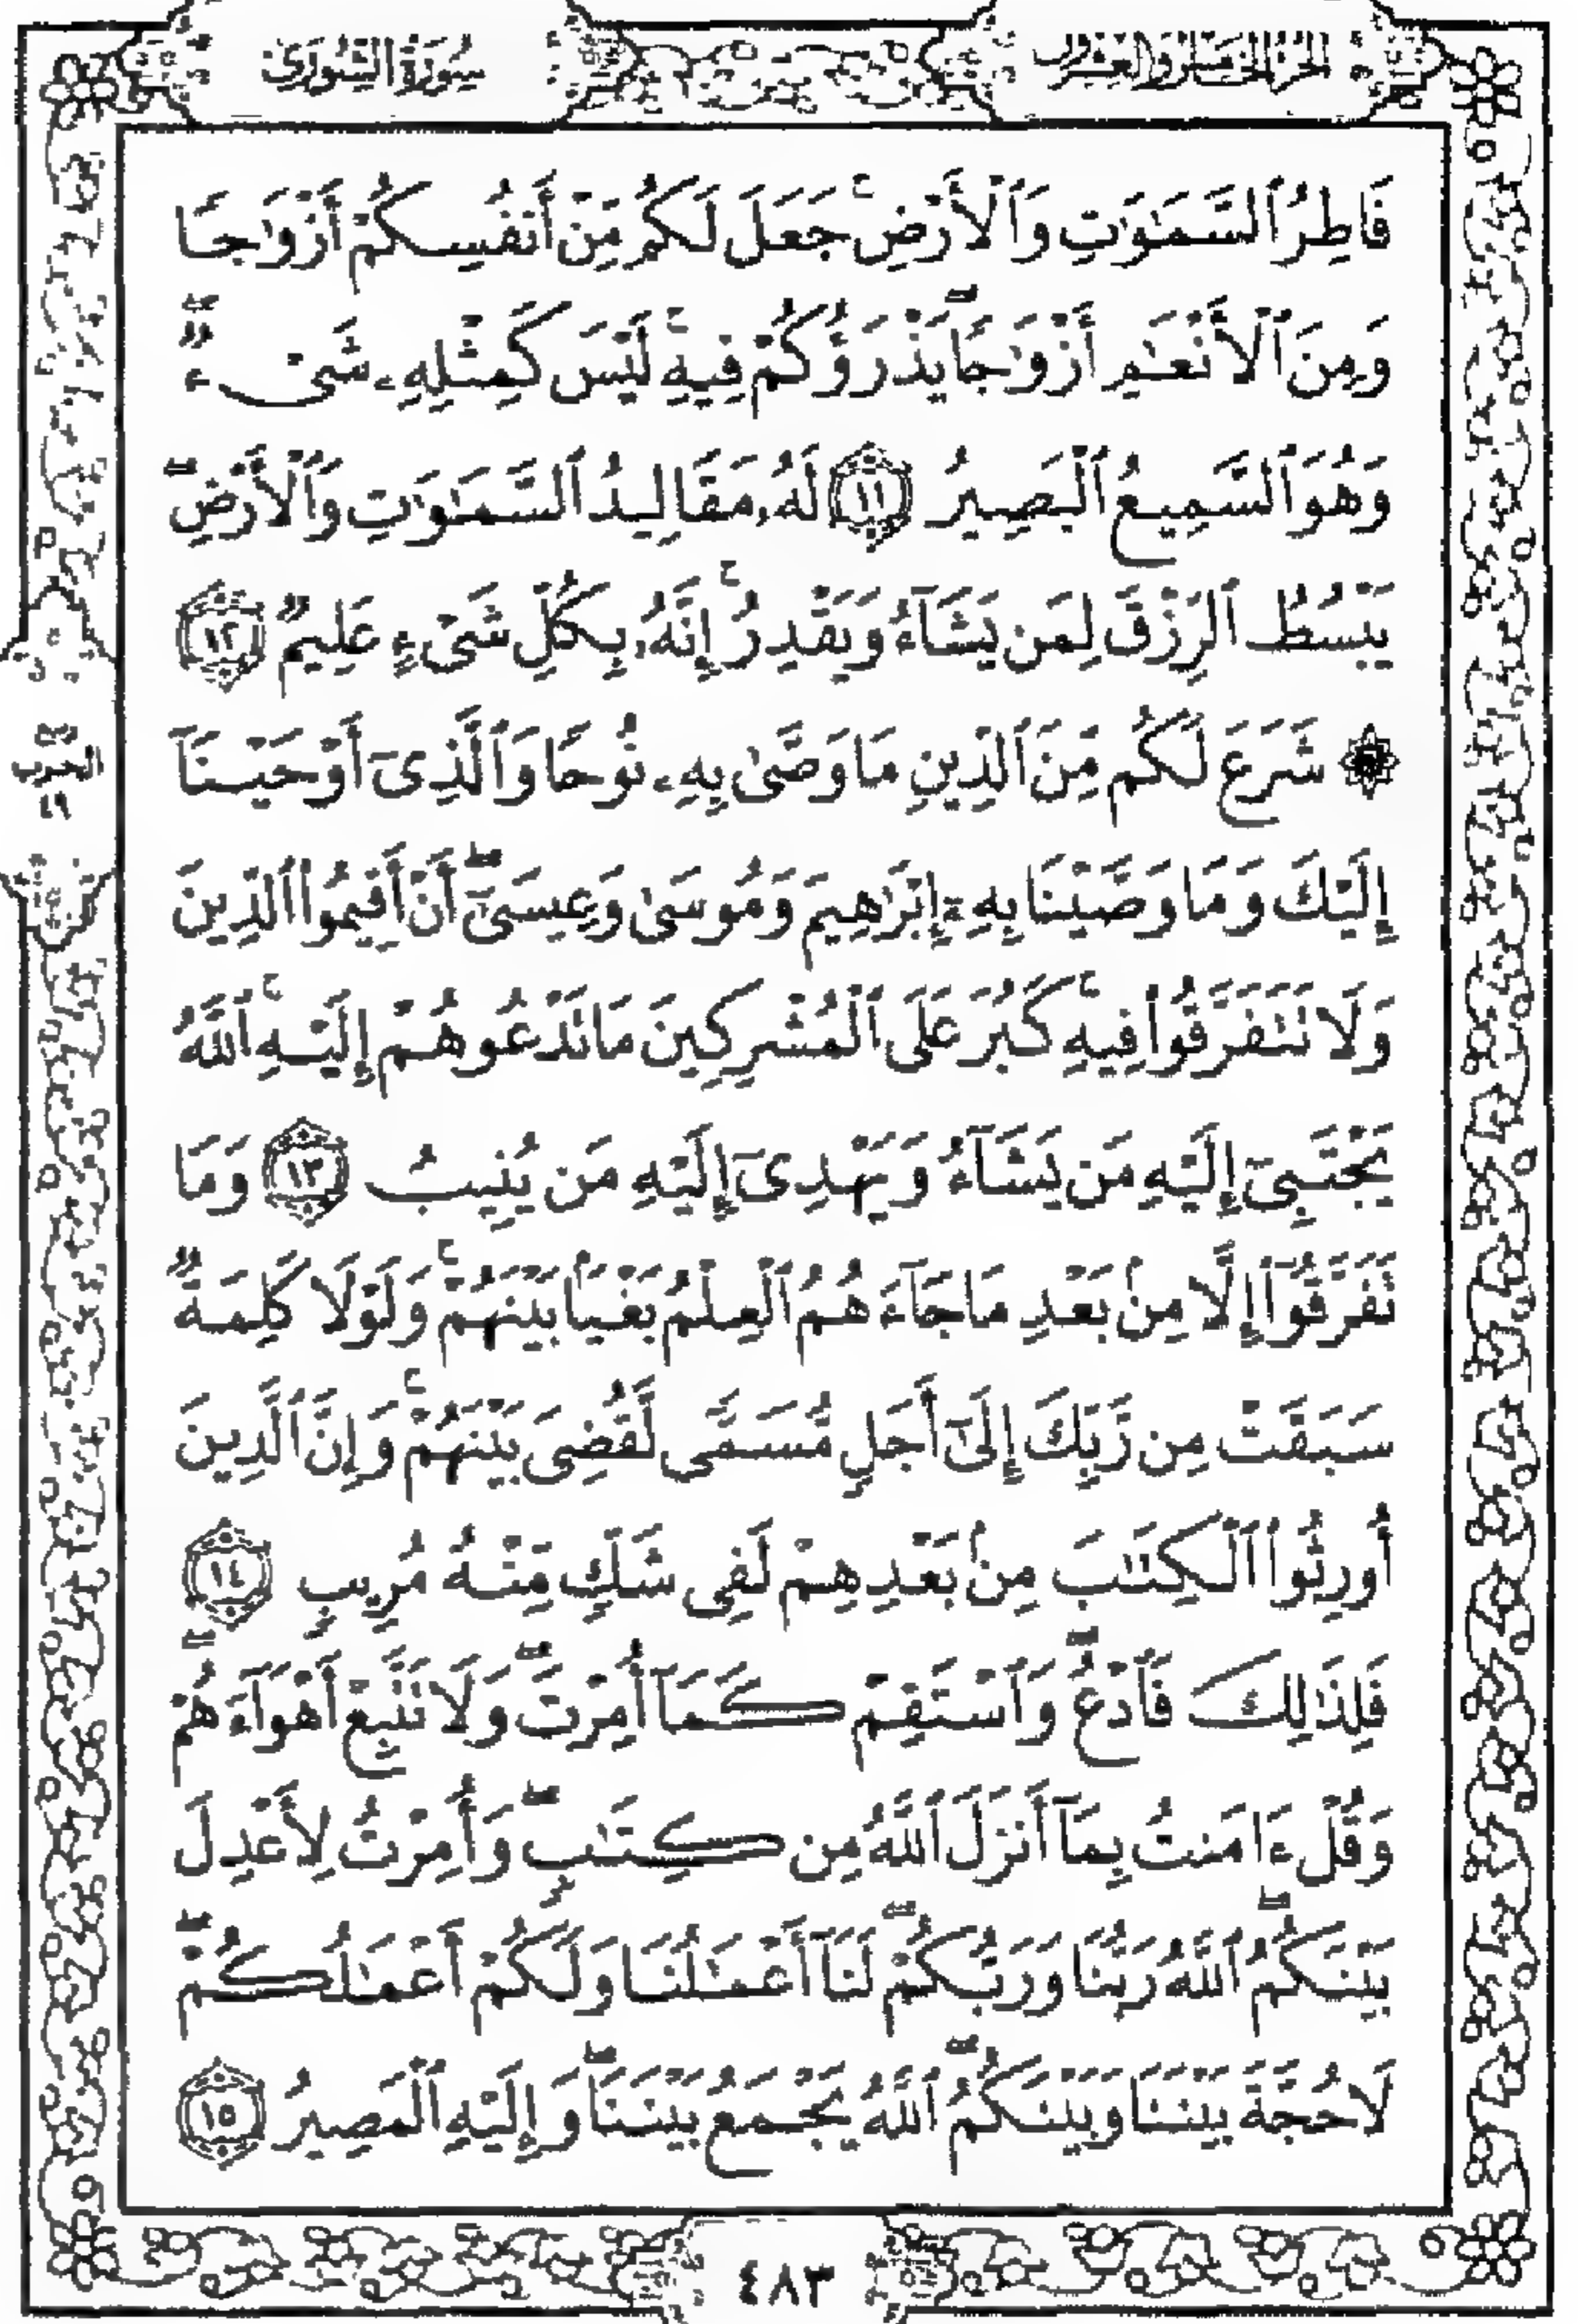 الجزء الخامس والعشرون
سورة الشورى
فَاطِرُ ٱلسَّمَٰوَٰتِ وَٱلْأَرْضِ ۚ جَعَلَ لَكُم مِّنْ أَنفُسِكُمْ أَزْوَٰجًا
وَمِنَ ٱلْأَنْعَٰمِ أَزْوَٰجًا ۖ يَذْرَؤُكُمْ فِيهِ ۚ لَيْسَ كَمِثْلِهِۦ شَىْءٌ ۖ
وَهُوَ ٱلسَّمِيعُ ٱلْبَصِيرُ ١١ لَهُۥ مَقَالِيدُ ٱلسَّمَٰوَٰتِ وَٱلْأَرْضِ ۖ
يَبْسُطُ ٱلرِّزْقَ لِمَن يَشَآءُ وَيَقْدِرُ ۚ إِنَّهُۥ بِكُلِّ شَىْءٍ عَلِيمٌ ١٢
۞ شَرَعَ لَكُم مِّنَ ٱلدِّينِ مَا وَصَّىٰ بِهِۦ نُوحًا وَٱلَّذِىٓ أَوْحَيْنَآ
إِلَيْكَ وَمَا وَصَّيْنَا بِهِۦٓ إِبْرَٰهِيمَ وَمُوسَىٰ وَعِيسَىٰٓ ۖ أَنْ أَقِيمُوا۟ ٱلدِّينَ
وَلَا تَتَفَرَّقُوا۟ فِيهِ ۚ كَبُرَ عَلَى ٱلْمُشْرِكِينَ مَا تَدْعُوهُمْ إِلَيْهِ ۚ ٱللَّهُ
يَجْتَبِىٓ إِلَيْهِ مَن يَشَآءُ وَيَهْدِىٓ إِلَيْهِ مَن يُنِيبُ ١٣ وَمَا
تَفَرَّقُوٓا۟ إِلَّا مِنۢ بَعْدِ مَا جَآءَهُمُ ٱلْعِلْمُ بَغْيًۢا بَيْنَهُمْ ۚ وَلَوْلَا كَلِمَةٌ
سَبَقَتْ مِن رَّبِّكَ إِلَىٰٓ أَجَلٍ مُّسَمًّى لَّقُضِىَ بَيْنَهُمْ ۚ وَإِنَّ ٱلَّذِينَ
أُورِثُوا۟ ٱلْكِتَٰبَ مِنۢ بَعْدِهِمْ لَفِى شَكٍّ مِّنْهُ مُرِيبٍ ١٤
فَلِذَٰلِكَ فَٱدْعُ ۖ وَٱسْتَقِمْ كَمَآ أُمِرْتَ ۖ وَلَا تَتَّبِعْ أَهْوَآءَهُمْ ۖ
وَقُلْ ءَامَنتُ بِمَآ أَنزَلَ ٱللَّهُ مِن كِتَٰبٍ ۖ وَأُمِرْتُ لِأَعْدِلَ
بَيْنَكُمُ ۖ ٱللَّهُ رَبُّنَا وَرَبُّكُمْ ۖ لَنَآ أَعْمَٰلُنَا وَلَكُمْ أَعْمَٰلُكُمْ ۖ
لَا حُجَّةَ بَيْنَنَا وَبَيْنَكُمُ ۖ ٱللَّهُ يَجْمَعُ بَيْنَنَا ۖ وَإِلَيْهِ ٱلْمَصِيرُ ١٥
الحزب
٤٩
٤٨٣